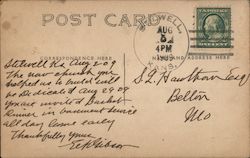 POST CARD
CORRESPONDENCE HERE
NAME AND ADDRESS HERE
STILWELL
AUG
5
4PM
1909
KANS.
Stilwell Ks Aug 2 09
The new church you
helped us to build will
be Dedicated Aug 29 09
your
Basket
Dinner in basement Service
all day Come early
Thankfully yours
Gibson
S. L.
Belton
Mo